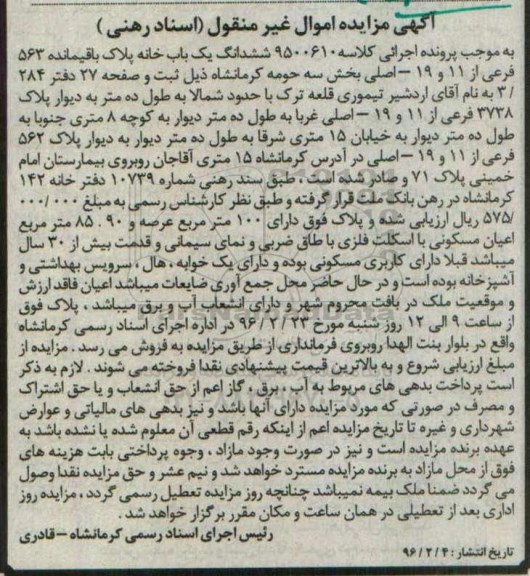 آگهی مزایده اموال غیر منقول (اسناد رهنی)
به موجب پرونده اجرائی کلاسه ۹۵۰۰۶۱۰ ششدانگ یک باب خانه پلاک باقیمانده ۵۶۳
فرعی از ۱۱ و ۱۹ – اصلی بخش سه حومه کرمانشاه ذیل ثبت و صفحه ۲۷ دفتر ۲۸۴
/ ۳ به نام آقای اردشیر تیموری قلعه ترک با حدود شمالا به طول ده متر به دیوار پلاک
۳۷۳۸ فرعی از ۱۱ و ۱۹ – اصلی غربا به طول ده متر دیوار به کوچه ۸ متری جنوبا به
طول ده متر دیوار به خیابان ۱۵ متری شرقا به طول ده متر دیوار به دیوار پلاک ۵۶۲
فرعی از ۱۱ و ۱۹ – اصلی در آدرس کرمانشاه ۱۵ متری آقاجان روبروی بیمارستان امام
خمینی پلاک ۷۱ و صادر شده است ، طبق سند رهنی شماره ۱۰۷۳۹ دفتر خانه ۱۴۲
کرمانشاه در رهن بانک ملت قرار گرفته و طبق نظر کارشناس رسمی به مبلغ ۰۰۰/۰۰۰
/۵۷۵ ریال ارزیابی شده و پلاک فوق دارای ۱۰۰ متر مربع عرصه و ۹۰ . ۸۵ متر مربع
اعیان مسکونی با اسکلت فلزی با طاق ضربی و نمای سیمانی و قدمت بیش از ۳۰ سال
میباشد قبلا دارای کاربری مسکونی بوده و دارای یک خوابه ، هال ، سرویس بهداشتی و
آشپزخانه بوده است و در حال حاضر محل جمع آوری ضایعات میباشد اعیان فاقد ارزش
و موقعیت ملک در بافت محروم شهر و دارای انشعاب آب و برق میباشد ، پلاک فوق
از ساعت ۹ الی ۱۲ روز شنبه مورخ ۲۳ / ۲ / ۹۶ در اداره اجرای اسناد رسمی کرمانشاه
واقع در بلوار بنت الهدا روبروی فرمانداری از طریق مزایده به فروش می رسد . مزایده از
مبلغ ارزیابی شروع و به بالاترین قیمت پیشنهادی نقدا فروخته می شوند . لازم به ذکر
است پرداخت بدهی های مربوط به آب ، برق ، گاز اعم از حق انشعاب و یا حق اشتراک
و مصرف در صورتی که مورد مزایده دارای آنها باشد و نیز بدهی های مالیاتی و عوارض
شهرداری و غیره تا تاریخ مزایده اعم از اینکه رقم قطعی آن معلوم شده یا نشده باشد به
عهده برنده مزایده است و نیز در صورت وجود مازاد ، وجوه پرداختی بابت هزینه های
فوق از محل مازاد به برنده مزایده مسترد خواهد شد و نیم عشر و حق مزایده نقدا وصول
می گردد ضمنا ملک بیمه نمیباشد چنانچه روز مزایده تعطیل رسمی گردد ، مزایده روز
اداری بعد از تعطیلی در همان ساعت و مکان مقرر برگزار خواهد شد .
رئیس اجرای اسناد رسمی کرمانشاه – قادری
تاریخ انتشار : ۴ / ۲ / ۹۶